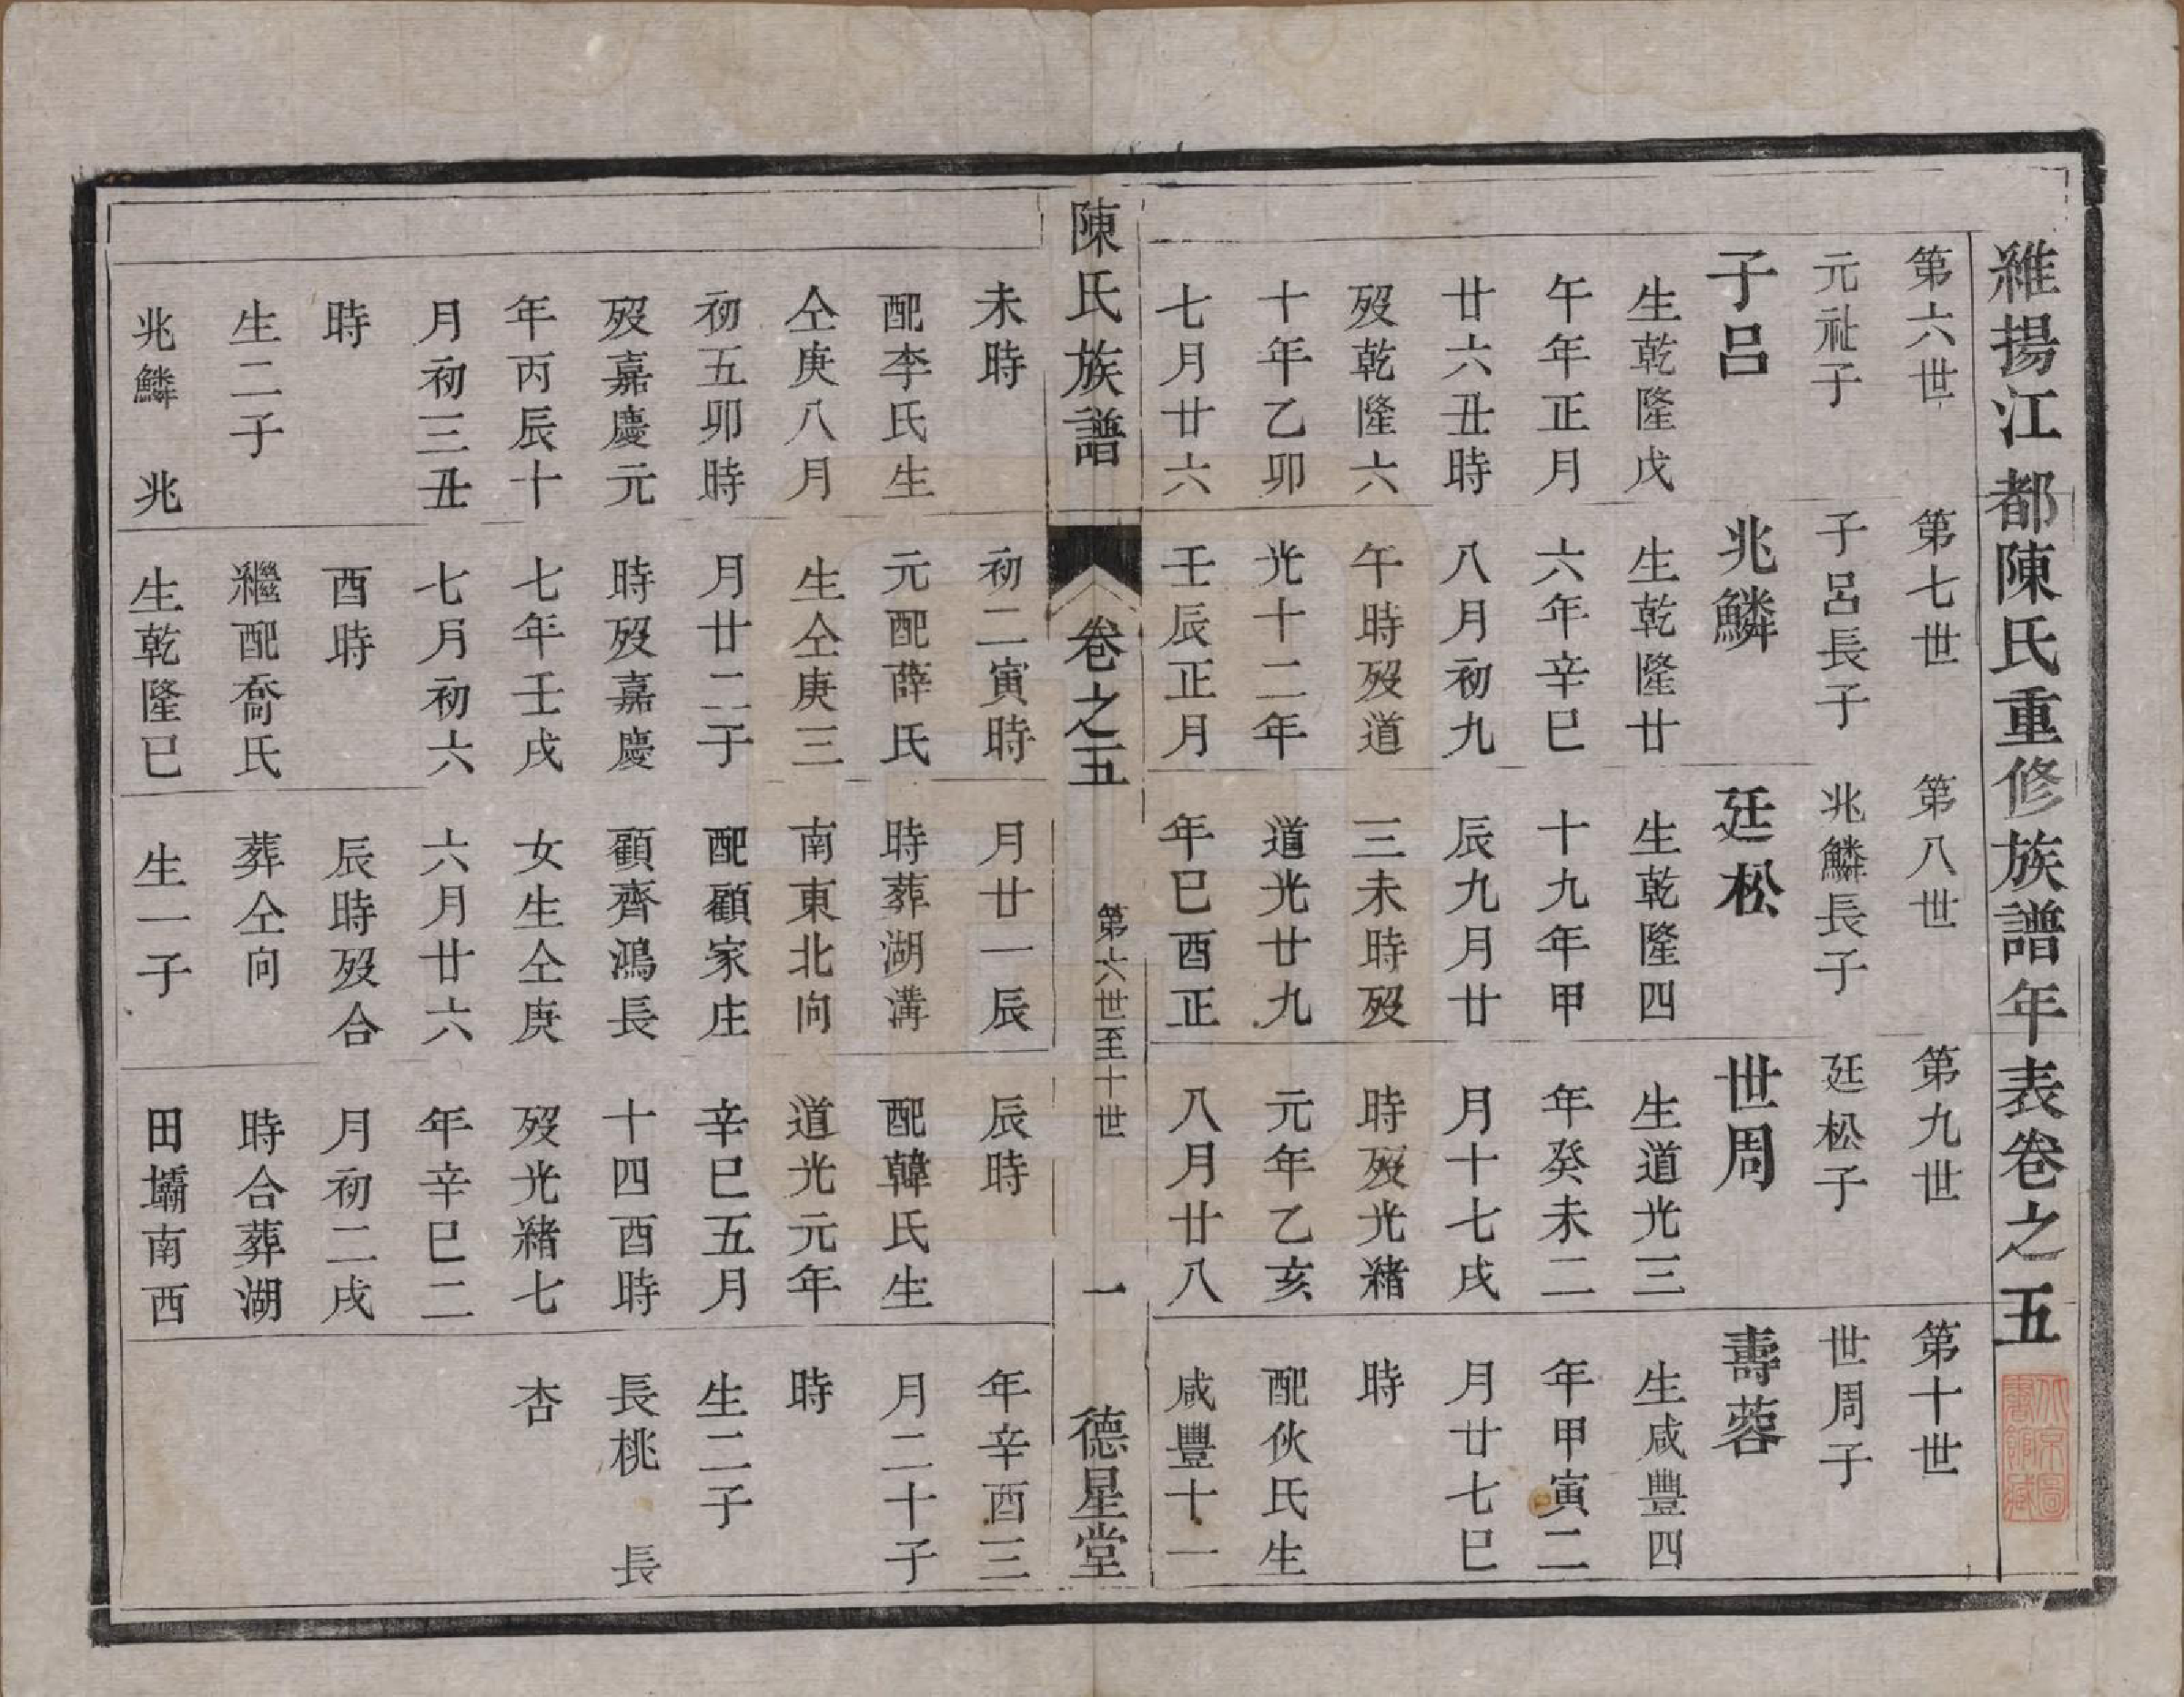 維揚江都陳氏重修族譜年表卷之五
北京圖
書館藏
第六世
元祉子
子呂
生乾隆戊
午年正月
廿六丑時
歿乾隆六
十年乙卯
七月廿六
未時
配李氏生
仝庚八月
初五卯時
歿嘉慶元
年丙辰十
月初三丑
時
生二子
兆鱗 兆
第七世
子呂長子
兆鱗
生乾隆廿
六年辛巳
八月初九
午時歿道
光十二年
壬辰正月
初二寅時
元配薛氏
生仝庚三
月廿二子
時歿嘉慶
七年壬戌
七月初六
酉時
繼配喬氏
生乾隆己
第八世
兆鱗長子
廷松
生乾隆四
十九年甲
辰九月廿
三未時歿
道光廿九
年己酉正
月廿一辰
時葬湖溝
南東北向
配顧家庄
顧齊鴻長
女生仝庚
六月廿六
辰時歿合
葬仝向
生一子
第九世
廷松子
世周
生道光三
年癸未二
月十七戌
時歿光緒
元年乙亥
八月廿八
辰時
配韓氏生
道光元年
辛巳五月
十四酉時
歿光緒七
年辛巳二
月初二戌
時合葬湖
田壩南西
第十世
世周子
壽蓉
生咸豐四
年甲寅二
月廿七巳
時
配伙氏生
咸豐十一
年辛酉三
月二十子
時
生二子
長桃 長
杏
陳氏族譜 卷之五 第六世至十世 一 德星堂